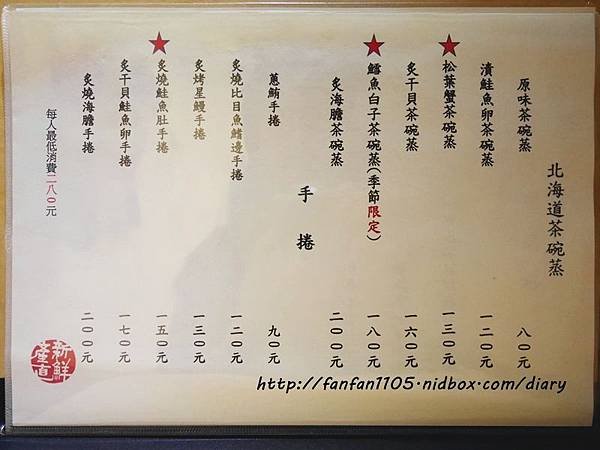 北海道茶碗蒸
原味茶碗蒸 八○元
漬鮭魚卵茶碗蒸 一二○元
★松葉蟹茶碗蒸 一三○元
炙干貝茶碗蒸 一六○元
★鱈魚白子茶碗蒸(季節限定) 一八○元
炙海膽茶碗蒸 二○○元
手捲
蔥鮪手捲 九○元
炙燒比目魚鰭邊手捲 一二○元
炙烤星鰻手捲 一三○元
★炙燒鮭魚肚手捲 一五○元
炙干貝鮭魚卵手捲 一七○元
炙燒海膽手捲 二○○元
每人最低消費二八○元
新鮮
產直
http://fanfan1105.nidbox.com/diary